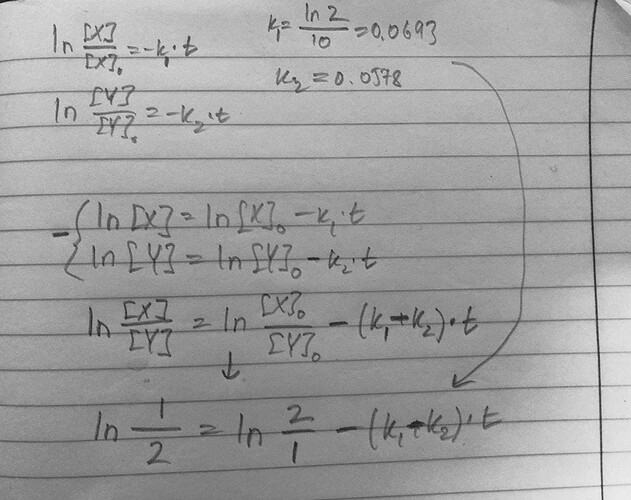 ln [X]/[X]₀ = -k₁·t
k₁ = ln 2/10 = 0.0693
k₂ = 0.0578
ln [Y]/[Y]₀ = -k₂·t
- { ln [X] = ln [X]₀ - k₁·t
ln [Y] = ln [Y]₀ - k₂·t
ln [X]/[Y] = ln [X]₀/[Y]₀ - (k₁-k₂)·t
↓
ln 1/2 = ln 2/1 - (k₁-k₂)·t